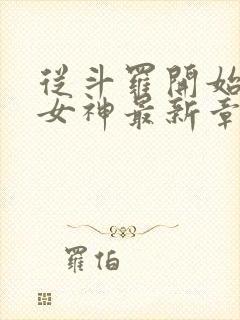 從斗羅開始
女神最新章
羅伯